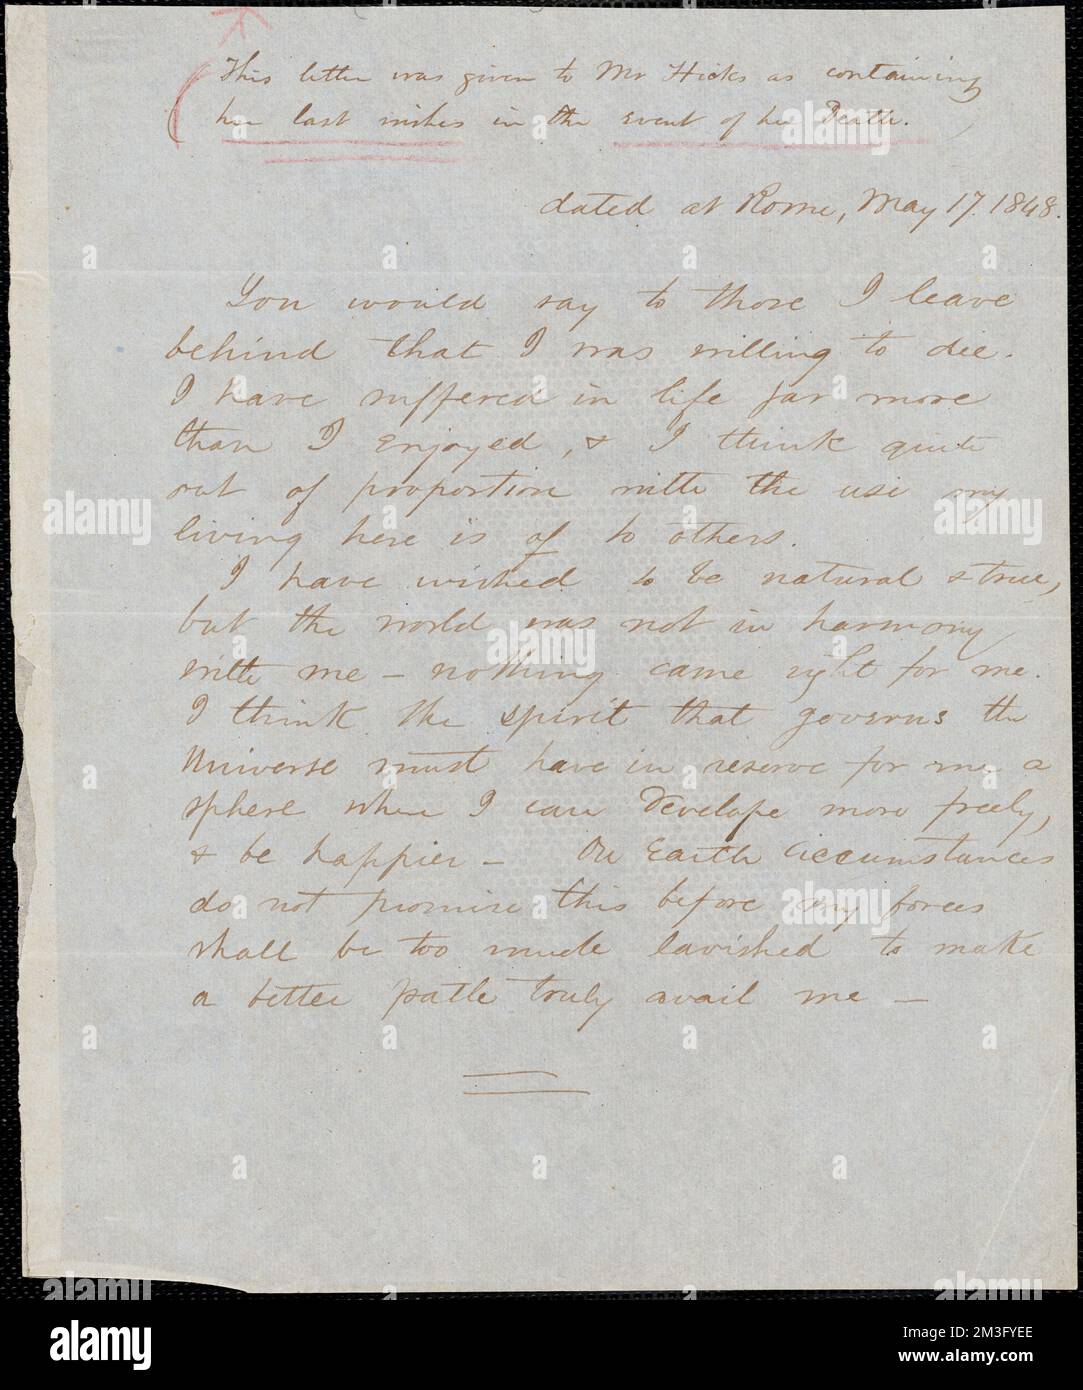 This letter was given to Mr Hicks as containing
her last wishes in the Event of her Death.
dated at Rome, May 17. 1848.
You would say to those I leave
behind that I was willing to die.
I have suffered in life far more
than I Enjoyed, & I think quite
out of proportion with the use my
living here is of to others.
I have wished to be natural & true,
but the world was not in harmony
with me – nothing came right for me.
I think the spirit that governs the
Universe must have in reserve for me a
sphere where I can Develope more freely,
& be happier – On Earth circumstances
do not promise this before my forces
shall be too much lavished to make
a better path truly avail me –
alamy
alamy
alamy
alamy
alamy
alamy
alamy
alamy
Image ID: 2M3FYEE
www.alamy.com